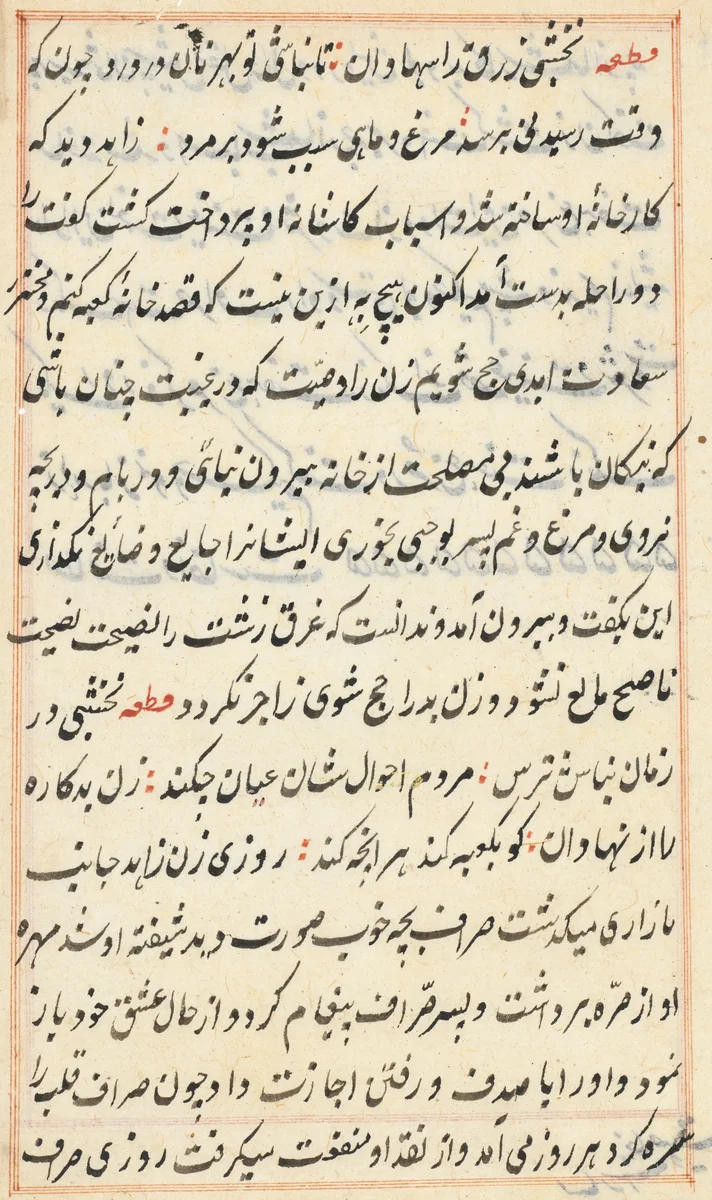 قطعه نخشبی زرق را سها و ان : تا نباشی تو بهر نان در ورد چون که
وقت رسیدنی برسد : مرغ و ماهی سبب شود بر مرد : زاهد دید که
کارخانهٔ او ساخته شد و اسباب کاشانه او پرداخت گشت گفت را
دو راحله بدست آمد اکنون هیچ به ازین نیست که قصد خانهٔ کعبه کنم و
سعادت ابدی حج شویم زن را وصیت که در غیبت چنان باشی
که نیکان باشند بی مصلحت از خانه بیرون نیائی و در بام و دریچه
نروی و مرغ و غم پسر بوجبی بخوری ایشانرا جایع و ضایع نگذاری
این بگفت و بیرون آمد و ندانست که عرق زشت را نصیحت نصیحت
ناصح مانع نشود و زن بد را حج شوی زاجر نگردد قطعه نخشبی در
زمان نباش ترس : مردم احوال شان عیان چکند : زن بدکاره
را از نهاوان : کو بکعبه کند هر انچه کند : روزی زن زاهد جانب
بازاری میگذشت صراف بچه خوب صورت دید شیفته او شد مهره
او از صره برداشت و پسر صراف پیغام کرد و از حال عشق خود باز
نمود و او را با صدف و رفتن اجازت داد چون صراف قلب را
سره کرد هر روز می آمد و از نقد او منفعت میگرفت روزی صراف